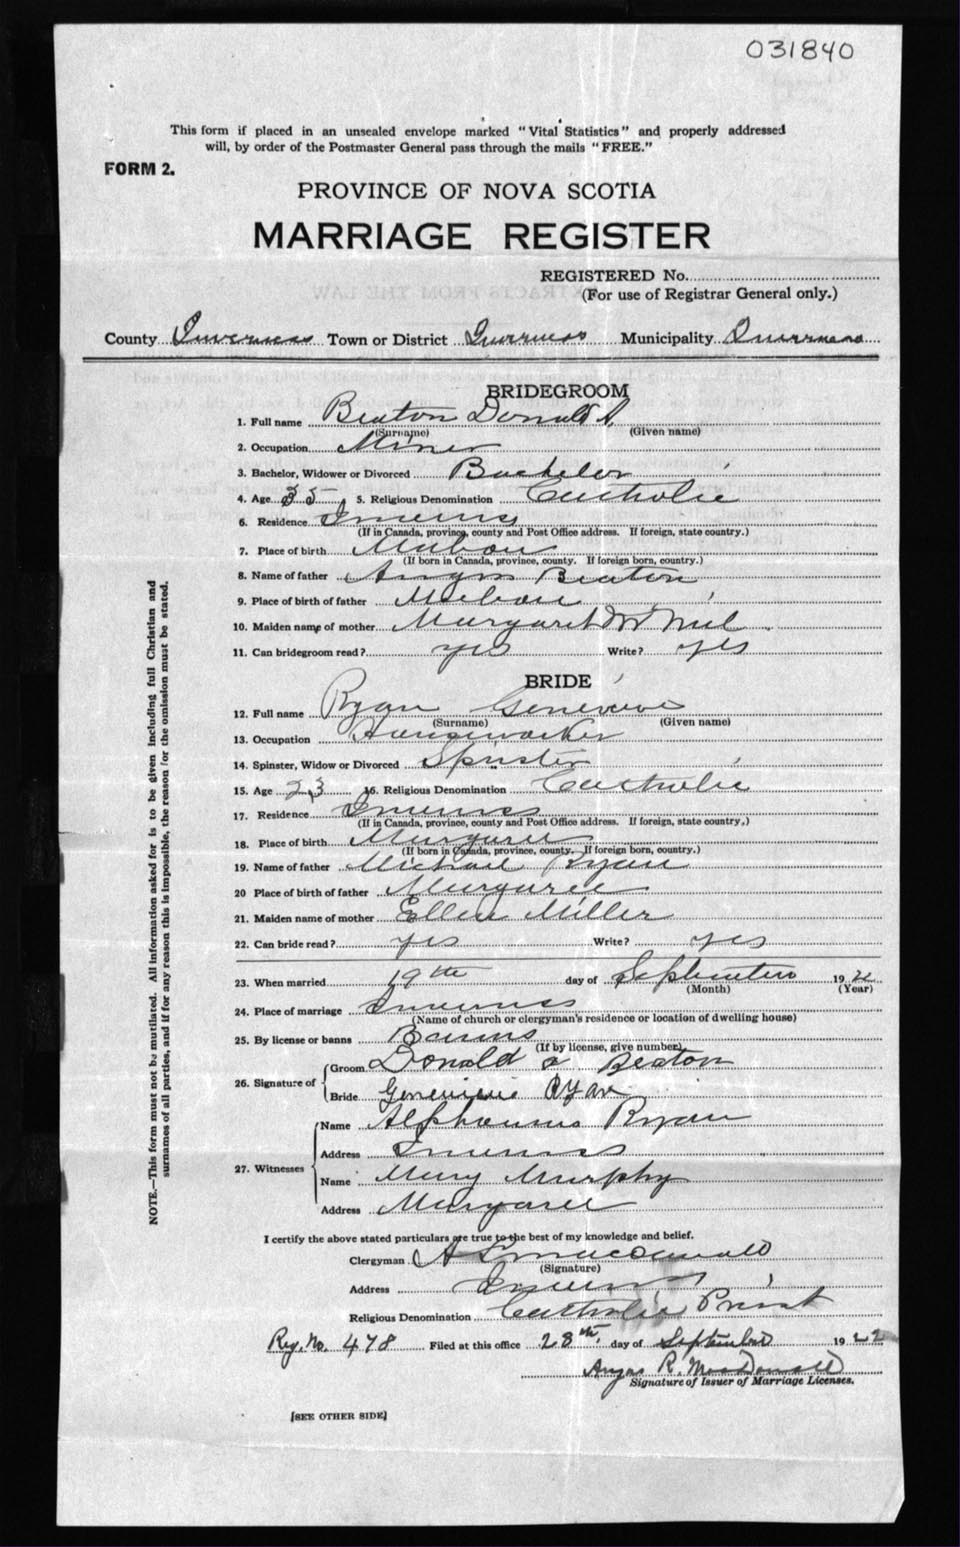 031840
This form if placed in an unsealed envelope marked "Vital Statistics" and properly addressed
will, by order of the Postmaster General pass through the mails "FREE."
FORM 2.
PROVINCE OF NOVA SCOTIA
MARRIAGE REGISTER
REGISTERED No.
(For use of Registrar General only.)
County Inverness Town or District Inverness Municipality Inverness
BRIDEGROOM
1. Full name Beaton Donald A.
(Surname) (Given name)
2. Occupation Miner
3. Bachelor, Widower or Divorced Bachelor
4. Age 35 5. Religious Denomination Catholic
6. Residence Inverness
(If in Canada, province, county and Post Office address. If foreign, state country.)
7. Place of birth Mabou
(If born in Canada, province, county. If foreign born, country.)
8. Name of father Angus Beaton
9. Place of birth of father Mabou
10. Maiden name of mother Margaret
11. Can bridegroom read? yes Write? yes
BRIDE
12. Full name Ryan Genevieve
(Surname) (Given name)
13. Occupation Houseworker
14. Spinster, Widow or Divorced Spinster
15. Age 23 16. Religious Denomination Catholic
17. Residence Inverness
(If in Canada, province, county and Post Office address. If foreign, state country.)
18. Place of birth Margaree
(If born in Canada, province, county. If foreign born, country.)
19. Name of father Michael Ryan
20 Place of birth of father Margaree
21. Maiden name of mother Ellen Miller
22. Can bride read? yes Write? yes
23. When married 19th day of September 192
(Month) (Year)
24. Place of marriage Inverness
(Name of church or clergyman's residence or location of dwelling house)
25. By license or banns Banns
(If by license, give number)
26. Signature of Groom Donald a Beaton
Bride Genevieve Ryan
27. Witnesses Name Alphonsus Ryan
Address Inverness
Name Mary Murphy
Address Margaree
I certify the above stated particulars are true to the best of my knowledge and belief.
Clergyman A L Macdonald
(Signature)
Address Inverness
Religious Denomination Catholic Priest
Reg. No. 478 Filed at this office 28th day of September 1922
Angus R. MacDonald
Signature of Issuer of Marriage Licenses.
[SEE OTHER SIDE]
NOTE.—This form must not be mutilated. All information asked for is to be given including full Christian and
surnames of all parties, and if for any reason this is impossible, the reason for the omission must be stated.